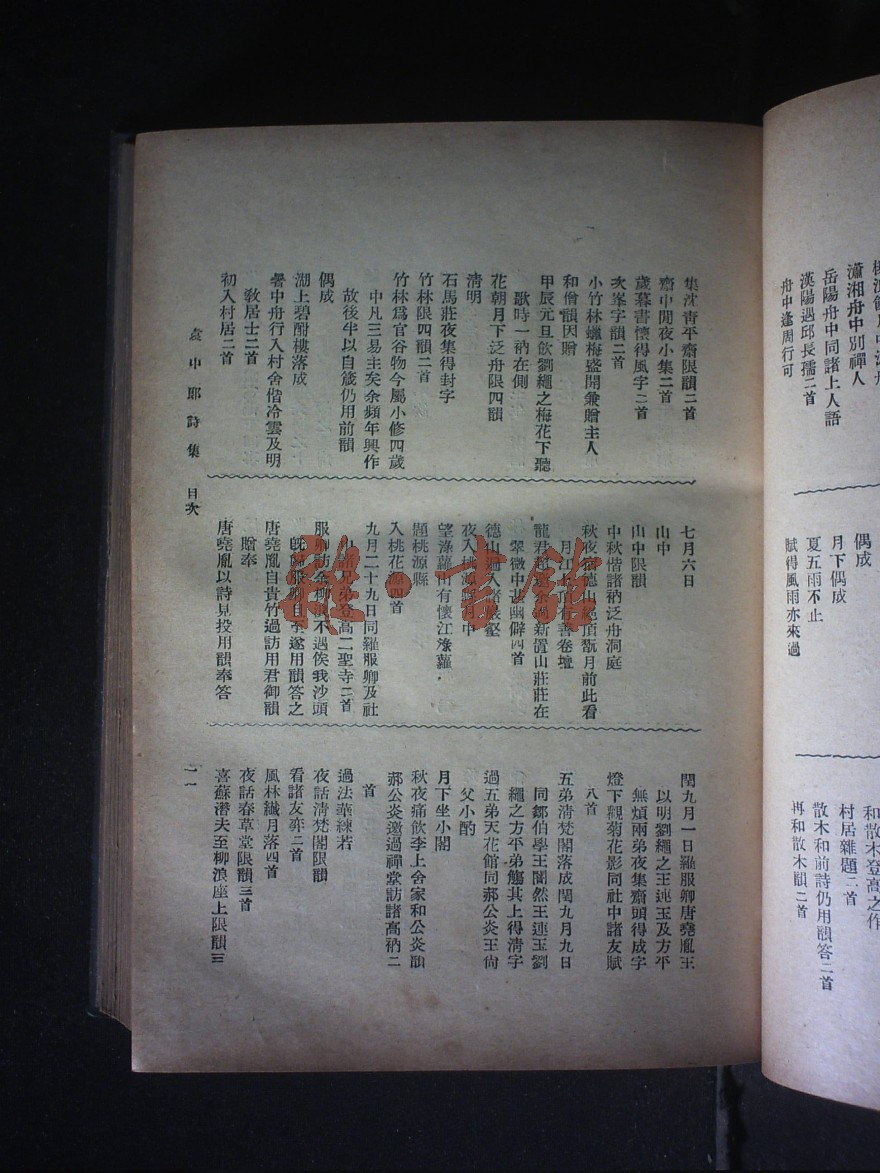 瀟湘舟中別禪人
岳陽舟中同諸上人語
漢陽遇邱長孺二首
舟中逢周行可
偶成
月下偶成
夏五雨不止
賦得風雨亦來過
和散木登高之作
村居雜題二首
散木和前詩仍用韻答二首
再和散木韻二首
集沈青平齋限韻二首
齋中閒夜小集二首
歲暮書懷得風字二首
次峯字韻二首
小竹林蠟梅盛開兼贈主人
和僧韻因贈
甲辰元旦飲劉繩之梅花下聽
歌時一衲在側
花朝月下泛舟限四韻
清明
石馬莊夜集得封字
竹林限四韻二首
竹林爲官谷物今屬小修四歲
中凡三易主矣余頻年興作
故後半以自箴仍用前韻
偶成
湖上碧酣樓落成
暑中舟行入村舍偕冷雲及明
教居士二首
初入村居二首
七月六日
山中
山中限韻
中秋偕諸衲泛舟洞庭
秋夜宿德山絕頂翫月前此看
月江上頂有善卷壇
龍君超邀余過新置山莊莊在
翠微中甚幽僻四首
德山過入諸嚴壑
夜入桃源 月中
望淥蘿山有懷江淥蘿
題桃源縣
入桃花源四首
九月二十九日同羅服卿及社
中諸兄弟登高二聖寺二首
服卿訪余柳浪不遇俟我沙頭
既歸服卿日至遂用韻答之
唐堯胤自貴竹過訪用君御韻
贈奉
唐堯胤以詩見投用韻奉答
閏九月一日羅服卿唐堯胤王
以明劉繩之王連玉及方平
無煩兩弟夜集齋頭得成字
燈下觀菊花影同社中諸友賦
八首
五弟清梵閣落成閏九月九日
同鄒伯學王闇然王連玉劉
繩之方平弟觴其上得清字
過五弟天花館同郝公炎王尙
父小酌
月下坐小閣
秋夜痛飲李上舍家和公炎韻
郝公炎邀過禪堂訪諸高衲二
首
過法華練若
夜話清梵閣限韻
看諸友弈二首
風林纖月落四首
夜話春草堂限韻三首
喜蘇潛夫至柳浪座上限韻三
袁中郎詩集 目次
一一
龍·書館